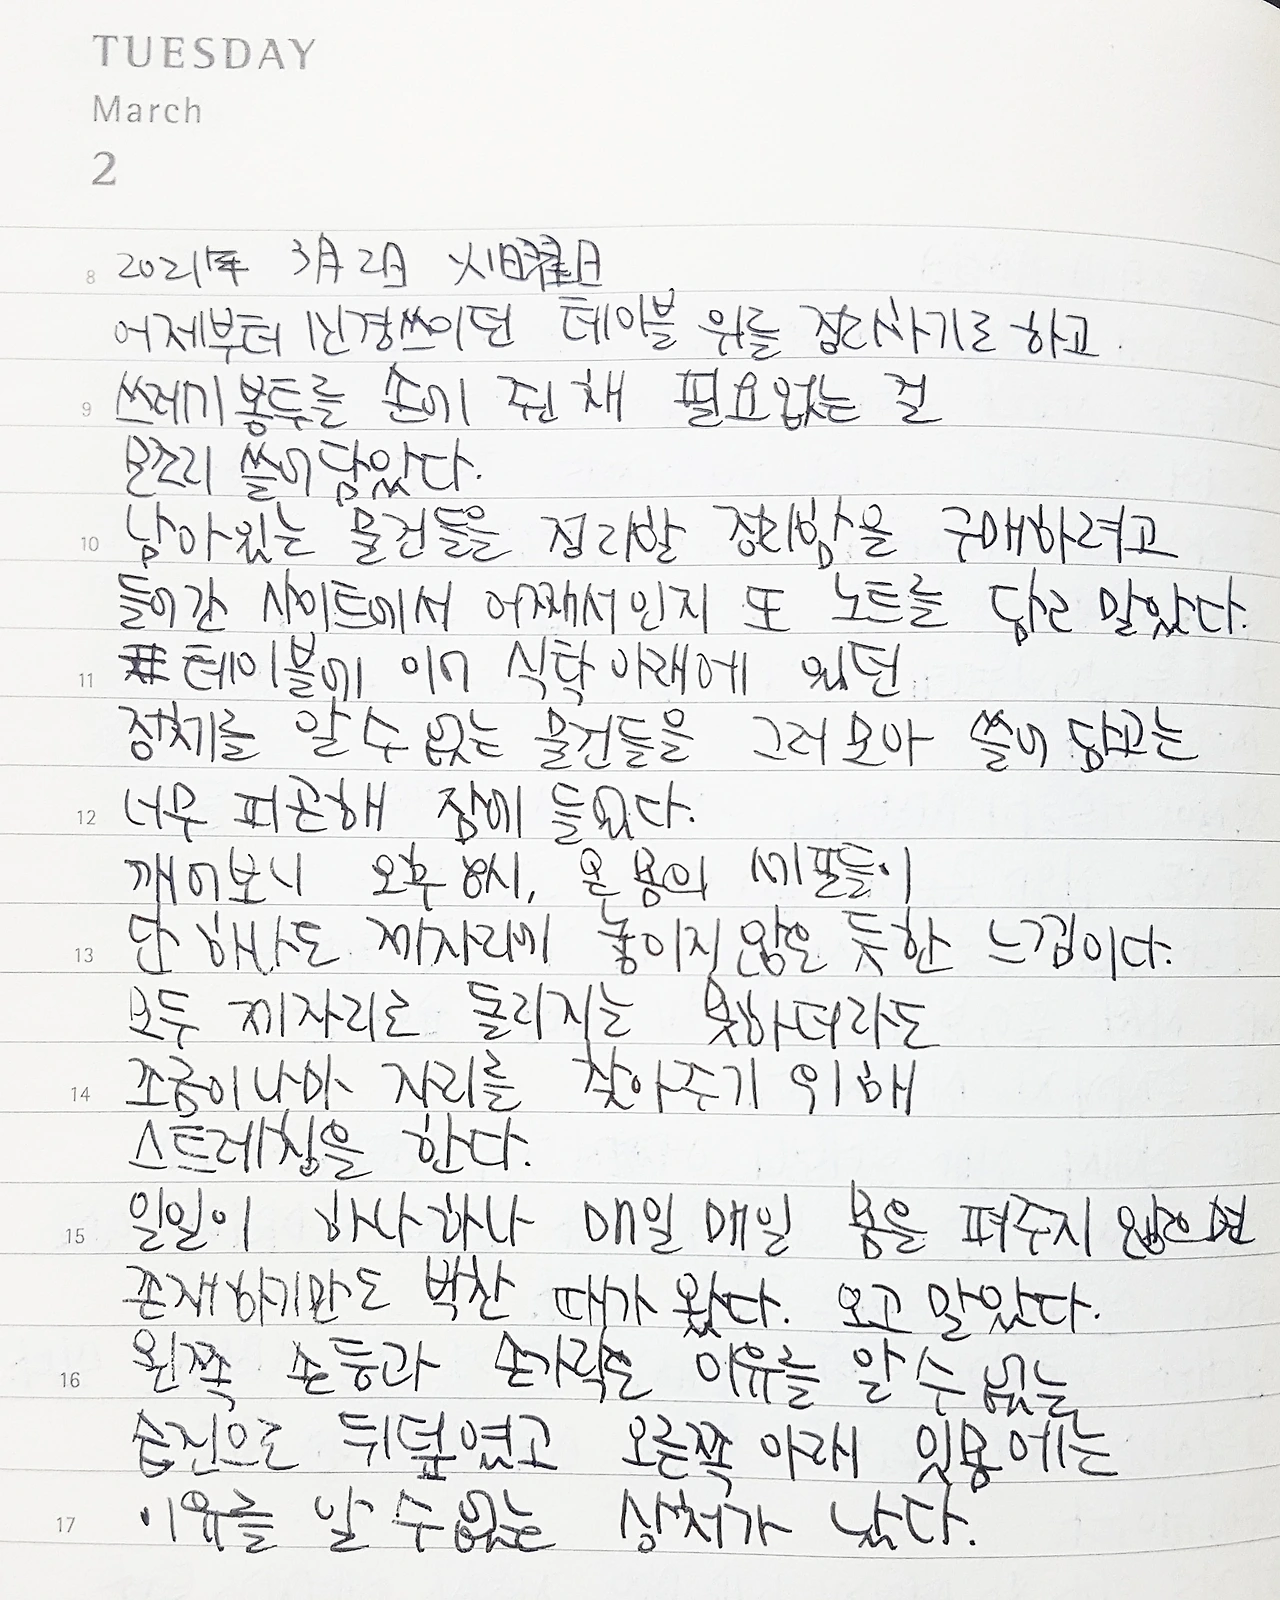 TUESDAY
March
2
8 2021年 3月 2日 火曜日
어제부터 신경쓰이던 테이블 위를 정리하기로 하고
9 쓰레기 봉투를 손에 쥔 채 필요없는 걸
모조리 쓸어담았다.
10 남아있는 물건들을 정리할 정리함을 구매하려고
들어간 사이트에서 어째서인지 또 노트를 담고 말았다.
11 테이블에 이어 식탁 아래에 있던
정체를 알 수 없는 물건들을 그러모아 쓸어 담고는
12 너무 피곤해 잠에 들었다.
깨어보니 오후 8시, 온 몸의 세포들이
13 단 하나도 제자리에 놓이지 않은 듯한 느낌이다.
모두 제자리로 돌리지는 못하더라도
14 조금이나마 자리를 찾아주기 위해
스트레칭을 한다.
15 일일이 하나하나 매일 매일 몸을 펴주지 않으면
존재하기만도 벅찬 때가 왔다. 오고 말았다.
16 왼쪽 손등과 손가락은 이유를 알 수 없는
습진으로 뒤덮였고 오른쪽 아래 잇몸에는
17 이유를 알 수 없는 상처가 났다.